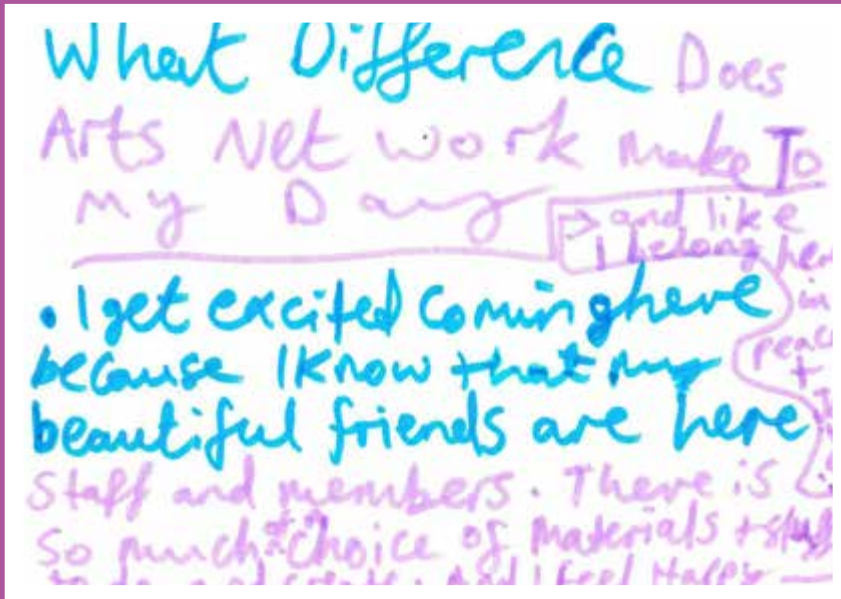 What Difference Does
Arts Net work make To
my Day
→ and like
I belong here
in
peace
+
• I get excited coming here
because I know that my
beautiful friends are here
staff and members. There is
so much choice of materials + stuff
to do and create. And I feel Happy —